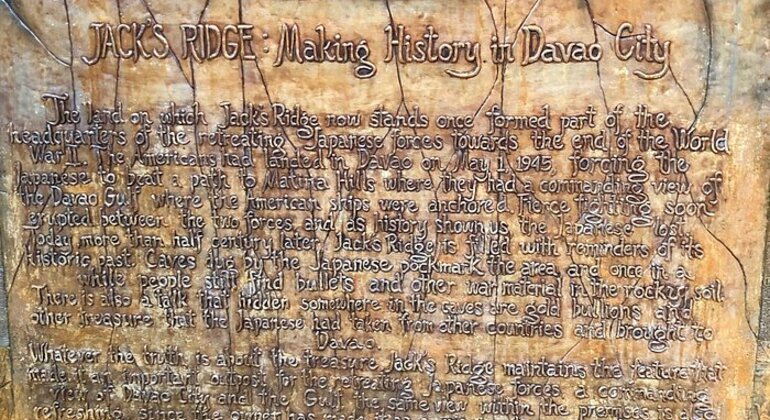 JACK'S RIDGE: Making History in Davao City
The land on which Jack's Ridge now stands once formed part of the
headquarters of the retreating Japanese forces towards the end of the World
War II. The Americans had landed in Davao on May 1, 1945, forcing the
Japanese to beat a path to Matina Hills where they had a commanding view of
the Davao Gulf where the American ships were anchored. Fierce fighting soon
erupted between the two forces, and as history shown us the Japanese lost.
Today, more than half century later, Jack's Ridge is filled with reminders of its
historic past. Caves dug by the Japanese pockmark the area, and once in a
while people still find bullets and other war material in the rocky soil.
There is also a talk that hidden somewhere in the caves are gold bullions and
other treasure that the Japanese had taken from other countries and brought to
Davao.
Whatever the truth is about the treasure, Jack's Ridge maintains the feature that
made it an important outpost for the retreating Japanese forces a commanding
view of Davao City and the Gulf, the same view within the premises is
refreshing since the owner has made